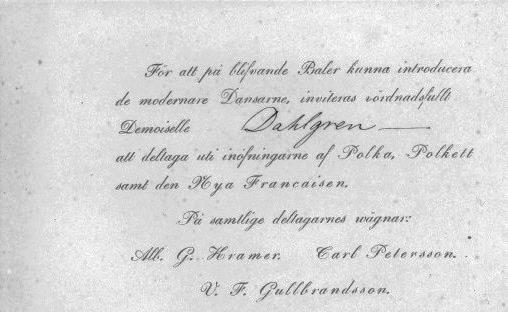 För att på blifvande Baler kunna introducera
de modernare Dansarne, inviteras vördnadsfullt
Demoiselle Dahlgren —
att deltaga uti inöfningarne af Polka, Polkett
samt den Nya Francaisen.
På samtlige deltagarnes wägnar:
Alb. G. Kramer. Carl Petersson.
V. F. Gullbrandsson.